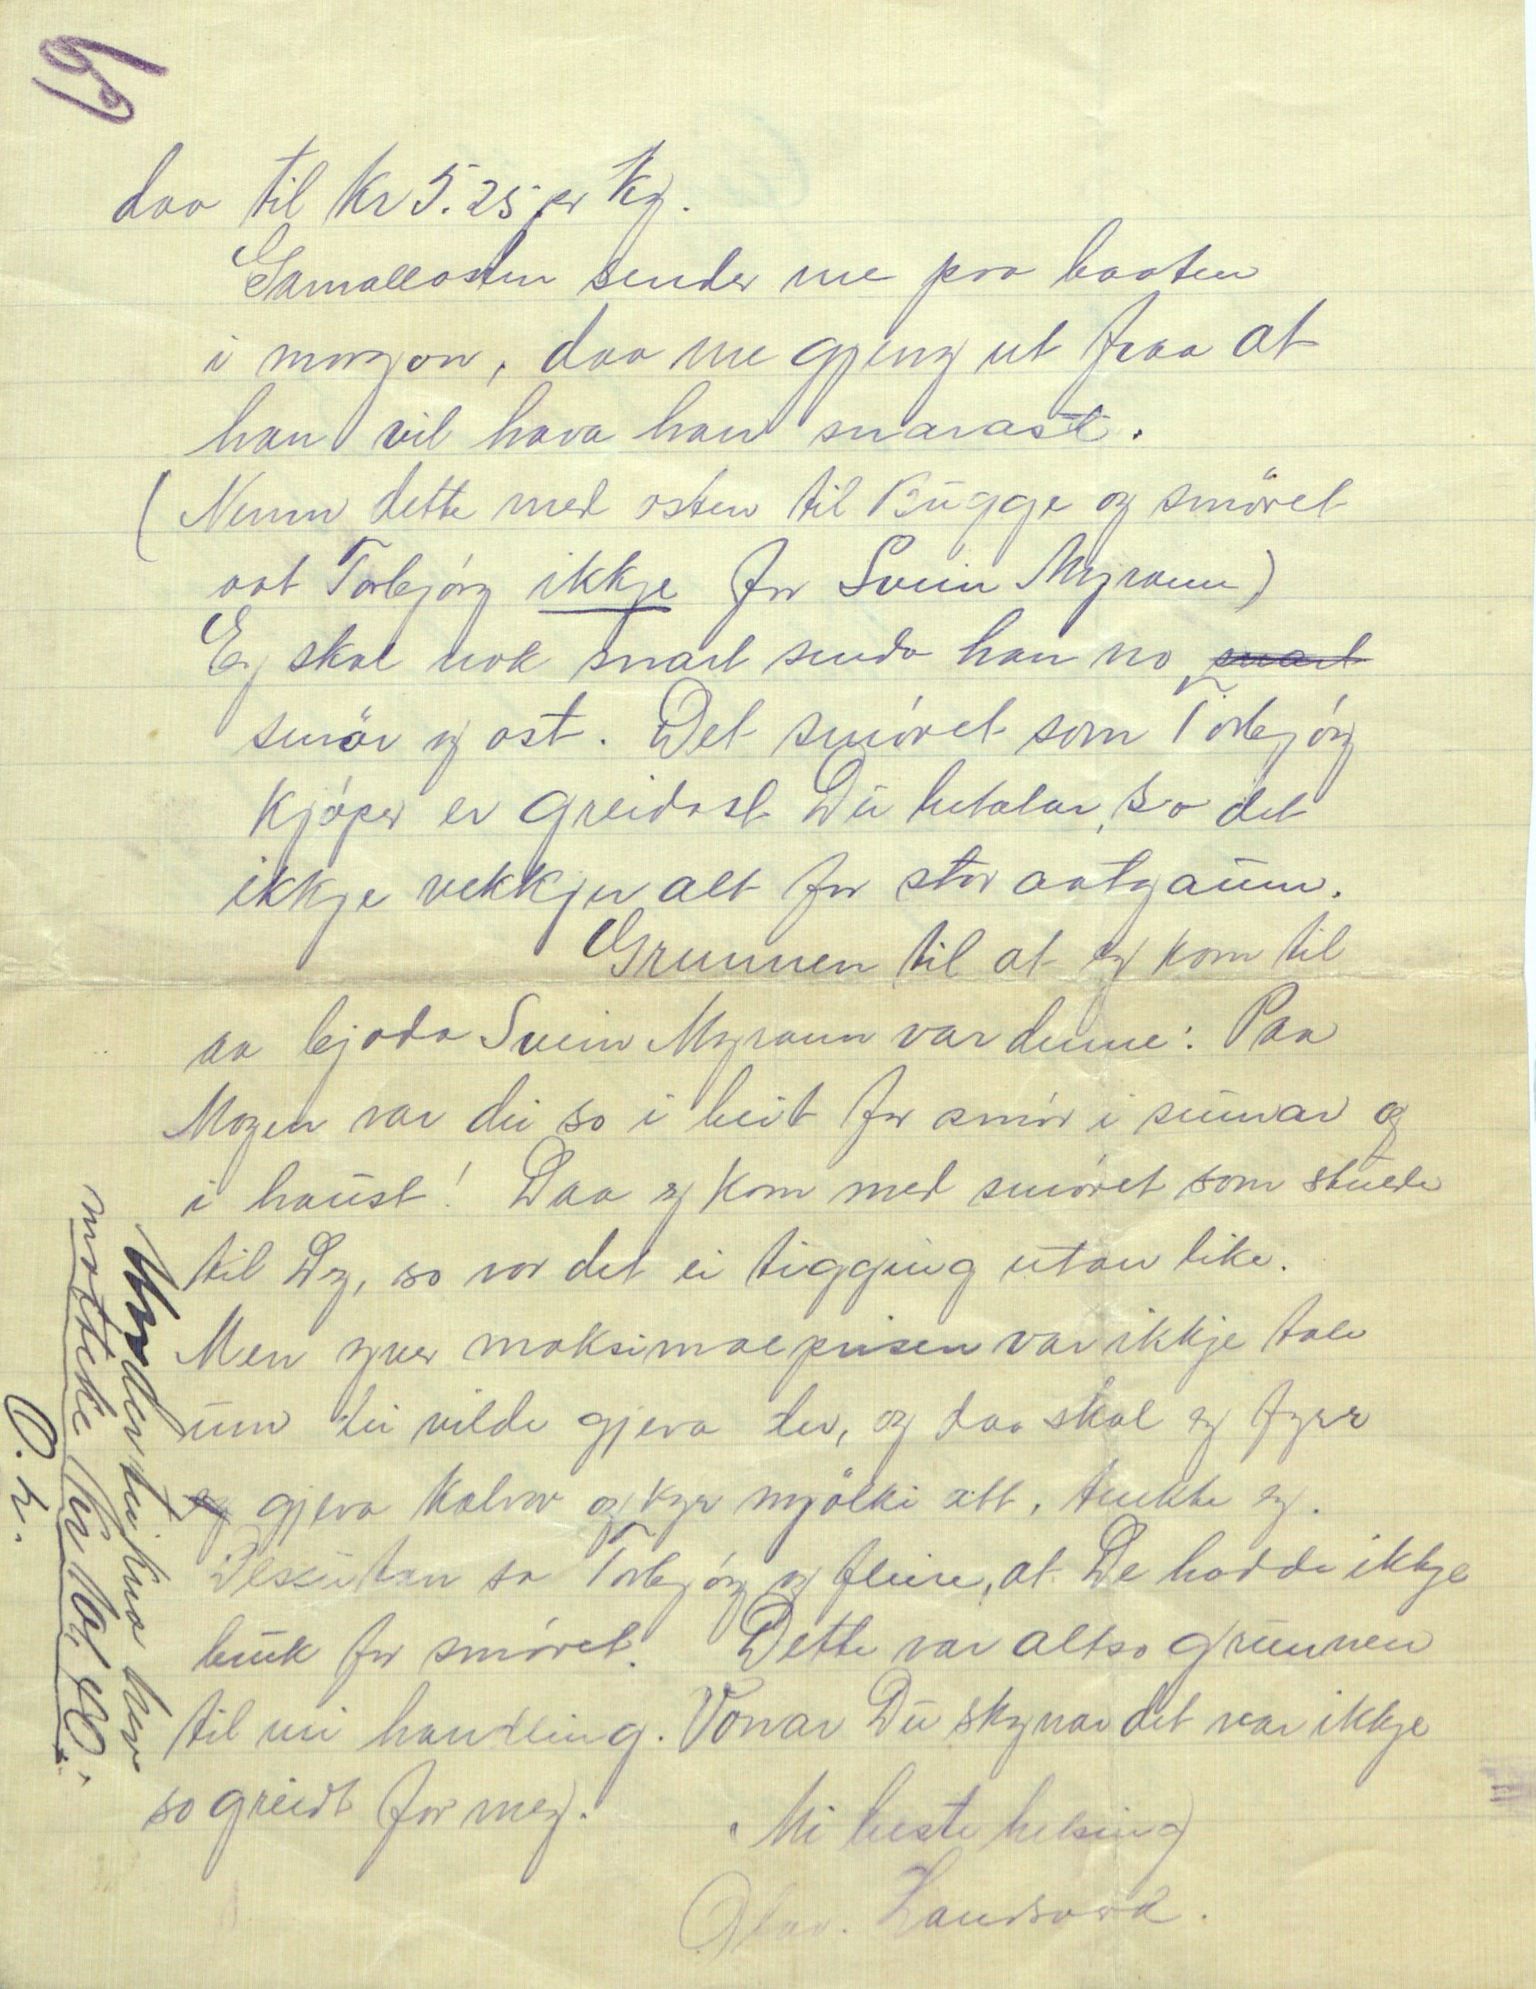 daa til Kr 5.25 pr kg.
Gamallosten sender me paa baaten
i morgon, daa me gjeng ut fraa at
han vil hava han snarast.
(Nemn dette med osten til Bugge og smöret
aat Torbjörg ikkje for Svein Myraun)
Eg skal nok snart senda han no snart
smör og ost. Det smöret som Torbjörg
kjöper er greidast Du betalar, so det
ikkje vekkjer alt for stor aatgaum.
Grunnen til at eg kom til
aa bjoda Svein Myraun var denne: Paa
Mogen var dei so i beit for smör i sumar og
i haust! Daa eg kom med smöret som skulde
til Deg, so var det ei tigging utan like.
Men yver maksimalprisen var ikkje tale
um dei vilde gjeva der, og daa skal eg fyrr
eg gjeva kalvar og kyr mjölki att, tenkte eg.
Dessutan sa Torbjörg og fleire, at De hadde ikkje
bruk for smöret. Dette var altso grunnen
til mi handling. Vonar Du skynar det var ikkje
so greidt for meg.
Mi beste helsing
Olav. Landsverk.
O. L.